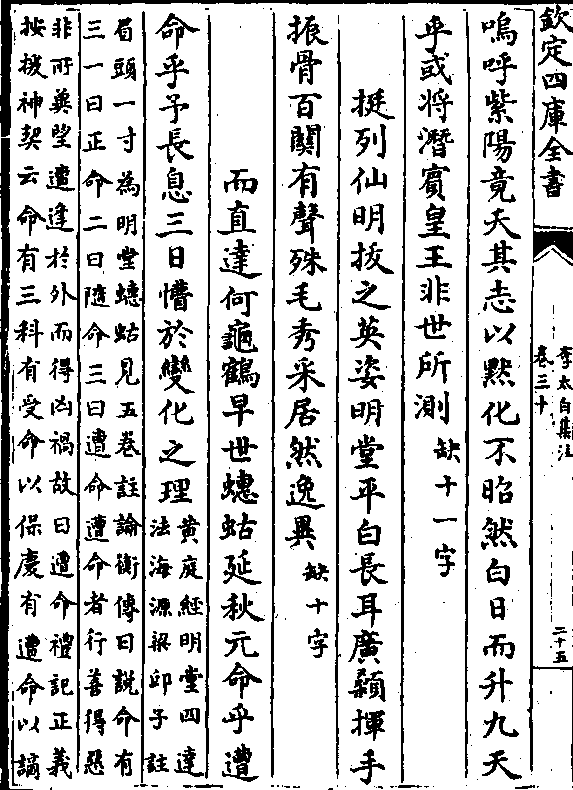 欽定四庫全書
李太白集注
卷三十
二十五
嗚呼紫陽竟夭其志以黙化不昭然白日而升九天
乎或將潛賓皇王非世所測
缺十一字
挺列仙明拔之英姿明堂平白長耳廣顙揮手
振骨百關有聲殊毛秀采居然逸異
缺十字
而直達何龜鶴早世蟪蛄延秋元命乎遭
命乎予長息三日懵於變化之理
黄庭經明堂四達
法海源梁邱子註
眉頭一寸為明堂蟪蛄見五巻註論衡傳曰説命有
三一曰正命二曰隨命三曰遭命遭命者行善得惡
非所冀望遭逢於外而得凶禍故曰遭命禮記正義
按援神契云命有三科有受命以保慶有遭命以謫